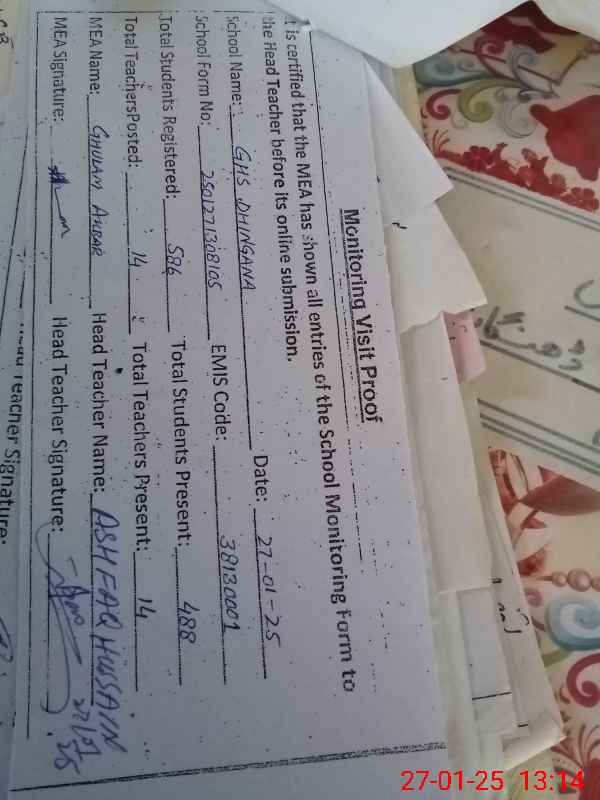 Monitoring Visit Proof
t is certified that the MEA has shown all entries of the School Monitoring Form to
the Head Teacher before its online submission.
School Name: GHS DHINGANA Date: 27-01-25
School Form No: 2501271308105 EMIS Code: 38130001
Total Students Registered: 586 Total Students Present: 488
Total Teachers Posted: 14 Total Teachers Present: 14
MEA Name: GHULAM AKBAR Head Teacher Name: ASHFAQ HUSSAIN
MEA Signature: Head Teacher Signature:
Head Teacher Signature:
27-01-25 13:14